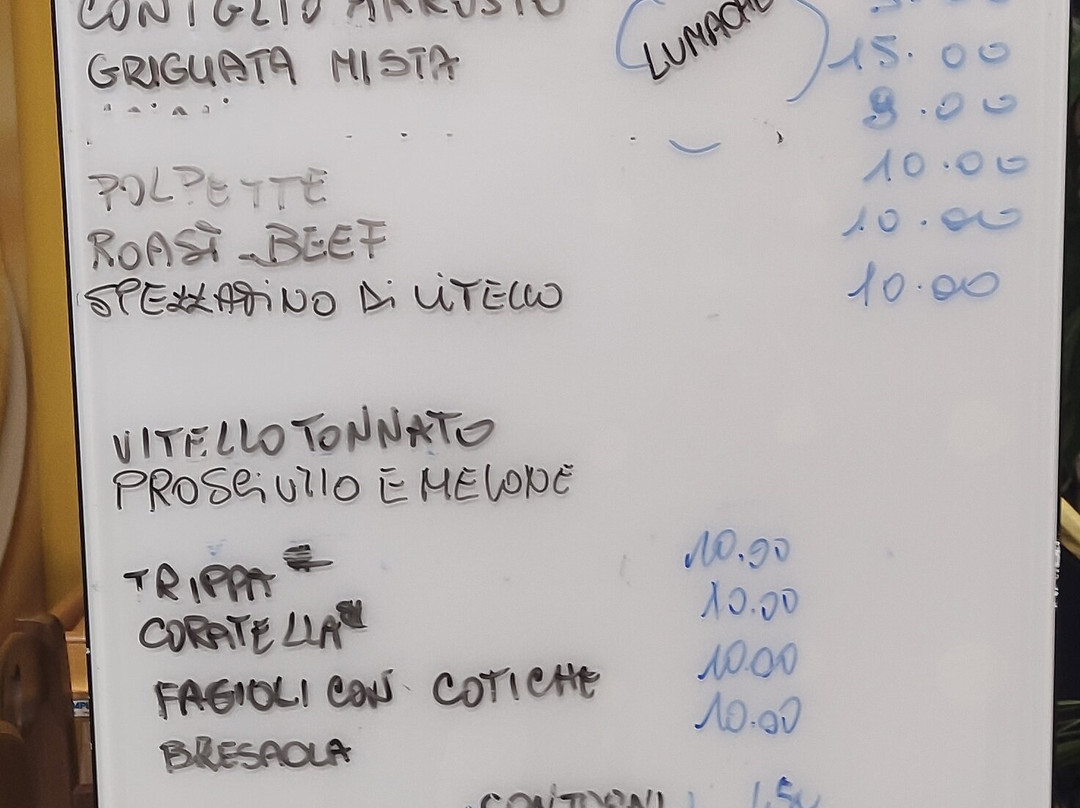 CONIGLIO ARROSTO
LUMACHE
GRIGLIATA MISTA 15.00
9.00
POLPETTE 10.00
ROAST-BEEF 10.00
SPEZZATINO Di VITELLO 10.00
VITELLO TONNATO
PROSCiUTTO E MELONE
TRIPPA 10.00
CORATELLA 10.00
FAGIOLI CON COTICHE 10.00
BRESAOLA 10.00
CONTORNI